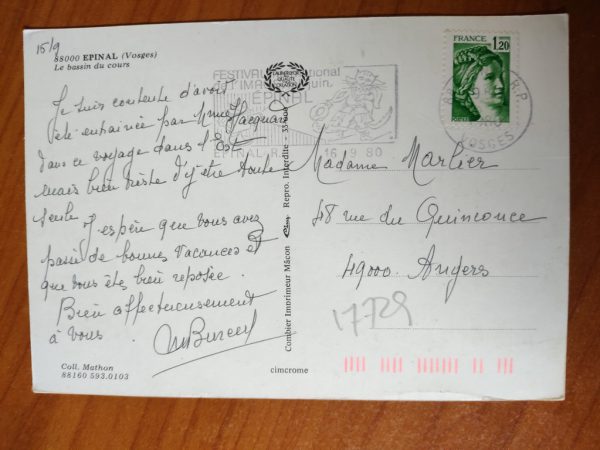 15/9
88000 EPINAL (Vosges)
Le bassin du cours
Je suis contente d'avoir
été entrainée par Mme Jacquard
dans ce voyage dans l'Est
mais bien triste d'y être toute
seule J'espère que vous avez
passé de bonnes vacances et
que vous êtes bien reposée.
Bien affectueusement
à vous.
Coll. Mathon
88160 593.0103
FESTIVAL
EPINAL
EPINAL R.P.
16.9.80
Combier Imprimeur Mâcon
Repro. Interdite
cimcrome
FRANCE
1,20
R.P
VOSGES
Madame Marlier
48 rue du Quinconce
49000. Angers
1729